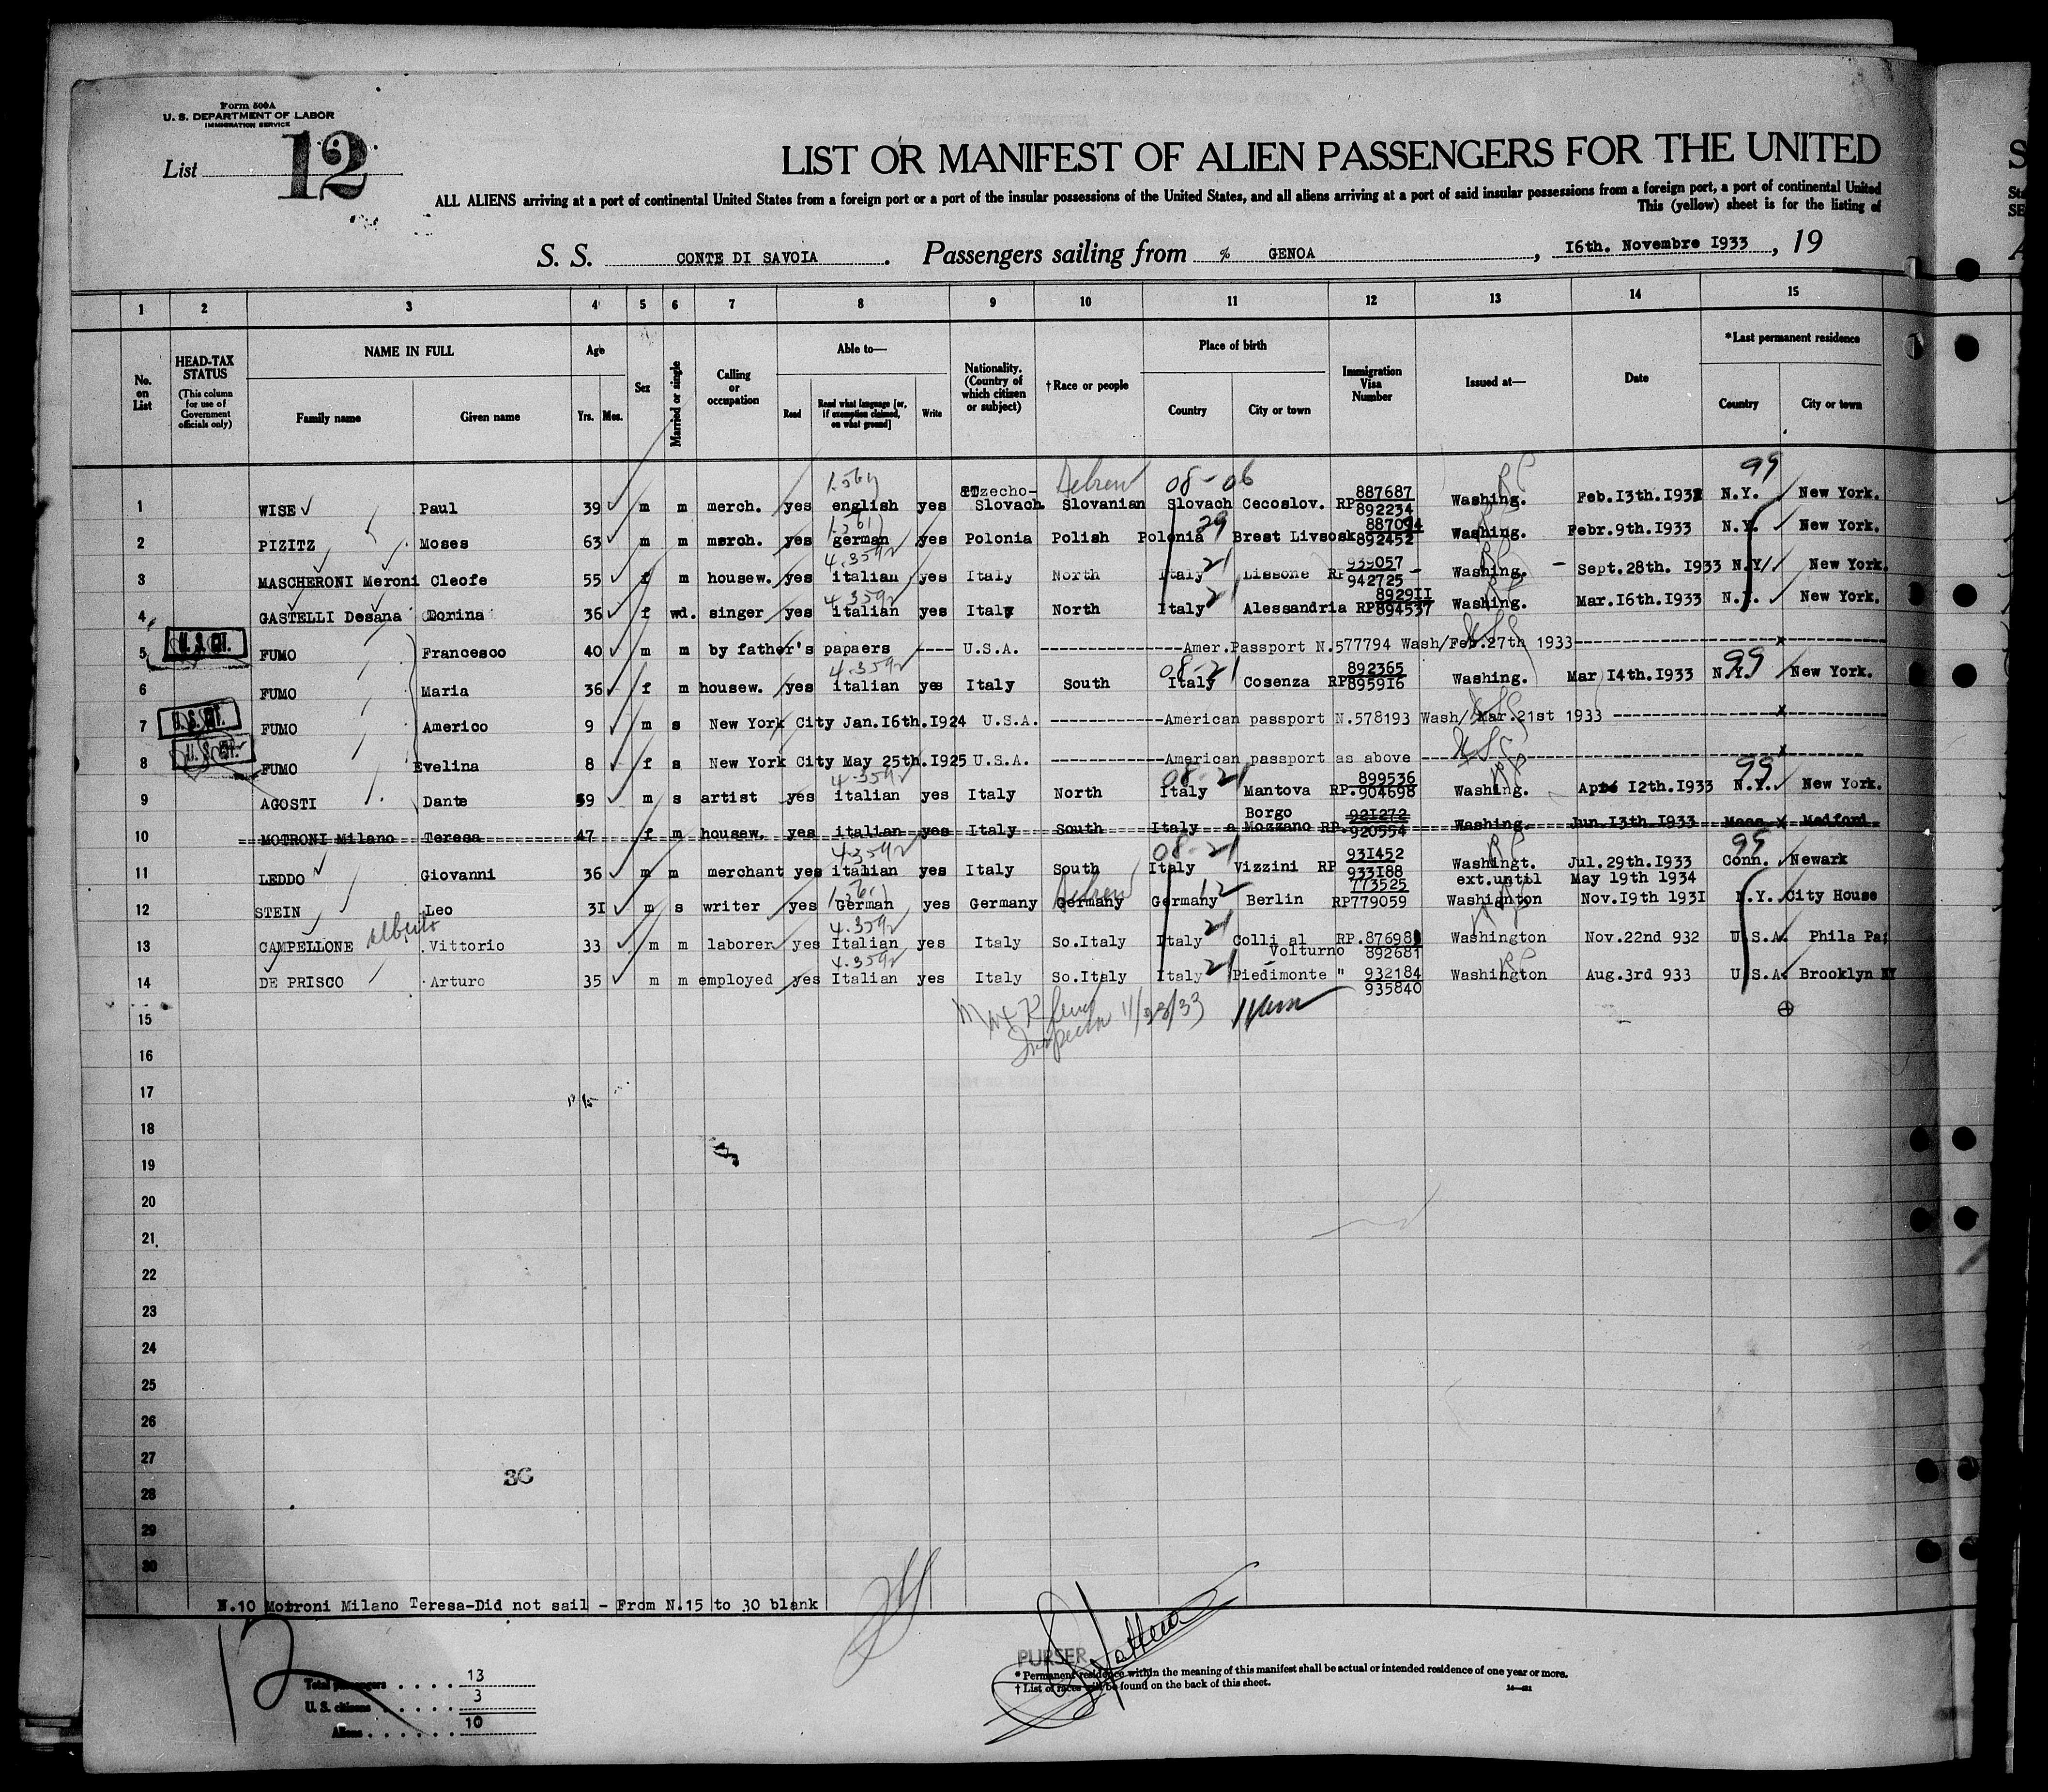 Form 500A
U. S. DEPARTMENT OF LABOR
IMMIGRATION SERVICE
List 12
LIST OR MANIFEST OF ALIEN PASSENGERS FOR THE UNITED
ALL ALIENS arriving at a port of continental United States from a foreign port or a port of the insular possessions of the United States, and all aliens arriving at a port of said insular possessions from a foreign port, a port of continental United
This (yellow) sheet is for the listing of
S. S. CONTE DI SAVOIA . Passengers sailing from % GENOA , 16th. Novembre 1933 , 19
1 2 3 4 5 6 7 8 9 10 11 12 13 14 15
No. on List
HEAD-TAX STATUS
(This column for use of Government officials only)
NAME IN FULL
Family name Given name
Age
Yrs. Mos.
Sex
Married or single
Calling or occupation
Able to—
Read
Read what language [or, if exemption claimed, on what ground]
Write
Nationality. (Country of which citizen or subject)
† Race or people
Place of birth
Country City or town
Immigration Visa Number
Issued at—
Date
*Last permanent residence
Country City or town
Hebrew 08-06 99
1 WISE Paul 39 m m merch. yes english yes Tzecho-Slovach. Slovanian Slovach Cecoslov. RP 887687 892234 Washing. Feb.13th.1932 N.Y. New York.
2 PIZITZ Moses 63 m m merch. yes german yes Polonia Polish Polonia 29 Brest Livsosk 887094 892452 Washing. Febr.9th.1933 N.Y. New York.
4.359
3 MASCHERONI Meroni Cleofe 55 f m housew. yes italian yes Italy North Italy 21 Lissone RP 939057 942725 Washing. Sept.28th. 1933 N.Y. New York.
4.359
4 GASTELLI Desana Dorina 36 f wd. singer yes italian yes Italy North Italy 21 Alessandria RP 892911 894537 Washing. Mar.16th.1933 N.Y. New York.
U. S. CIT.
5 FUMO Francesco 40 m m by father's papaers ---- U.S.A. ----------------Amer.Passport N.577794 Wash/Feb.27th 1933--------------------x-----------
4.359 08-21 99
6 FUMO Maria 36 f m housew. yes italian yes Italy South Italy Cosenza RP 892365 895916 Washing. Mar 14th.1933 N.Y. New York.
U. S. CIT.
7 FUMO Americo 9 m s New York City Jan.16th.1924 U.S.A. -------------American passport N.578193 Wash/ Mar.21st 1933 ----------------x-----------
U. S. CIT.
8 FUMO Evelina 8 f s New York City May 25th.1925 U.S.A. -------------American passport as above -----------------------------------x---------
4.359 08-21 99
9 AGOSTI Dante 59 m s artist yes italian yes Italy North Italy Mantova RP. 899536 904698 Washing. 12th.1933 N.Y. New York.
10 MOTRONI Milano Teresa 47 f m housew. yes italian yes Italy South Italy Borgo a Mozzano RP. 921272 920554 Washing. Jun.13th.1933 Mass. x Medford
4.359 08-21 99
11 LEDDO Giovanni 36 m m merchant yes italian yes Italy South Italy Vizzini RP 931452 933188 Washingt. Jul.29th.1933 Conn. Newark
ext.until May 19th 1934
Hebrew
12 STEIN Leo 31 m s writer yes German yes Germany Germany Germany 12 Berlin RP 773525 779059 Washignton Nov.19th 1931 N.Y. City House
4.359
13 CAMPELLONE Alberto Vittorio 33 m m laborer yes Italian yes Italy So.Italy Italy 21 Colli al Volturno RP. 876981 892681 Washington Nov.22nd 932 U.S.A. Phila Pa;
4.359
14 DE PRISCO Arturo 35 m m employed yes Italian yes Italy So.Italy Italy 21 Piedimonte " 932184 935840 Washington Aug.3rd 933 U.S.A. Brooklyn NY
15
Inspector 11/23/33
16
17
18
19
20
21
22
23
24
25
26
27
36
28
29
30
N.10 Motroni Milano Teresa-Did not sail - From N.15 to 30 blank
12
Total passengers . . . . 13
U. S. citizens . . . . . 3
Aliens . . . . . . 10
PURSER
* Permanent residence within the meaning of this manifest shall be actual or intended residence of one year or more.
† List of races will be found on the back of this sheet.